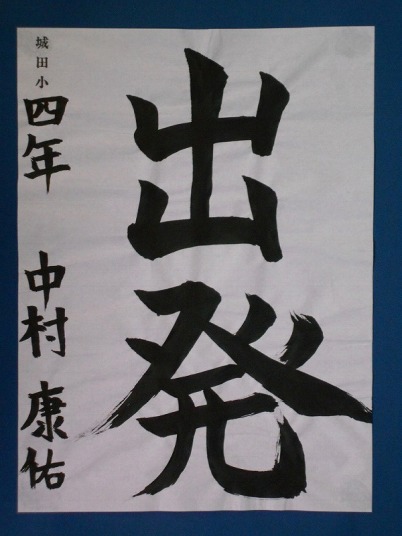 出発
城田小
四年 中村 康佑